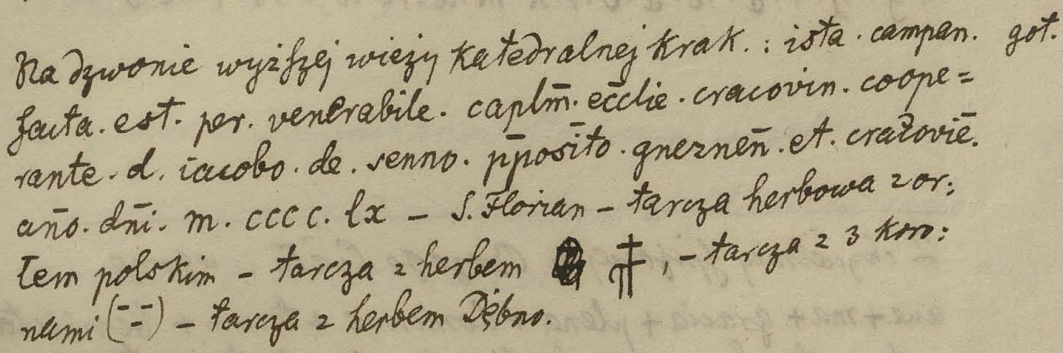 Na dzwonie wyższej wieży katedralnej krak. : ista · campan. got.
facta · est · per · venerabile · caplm̄ · ec̄clie · cracovin · coope=
rante · d. iacobo · de · senno · p̄posīto · gneznen̄ · et · cracoviē.
an̄o · dn̄i · m. cccc. lx – S. Florian – tarcza herbowa z or:
łem polskim – tarcza z herbem , – tarcza z 3 koro:
nami (– – –) – tarcza z herbem Dębno.